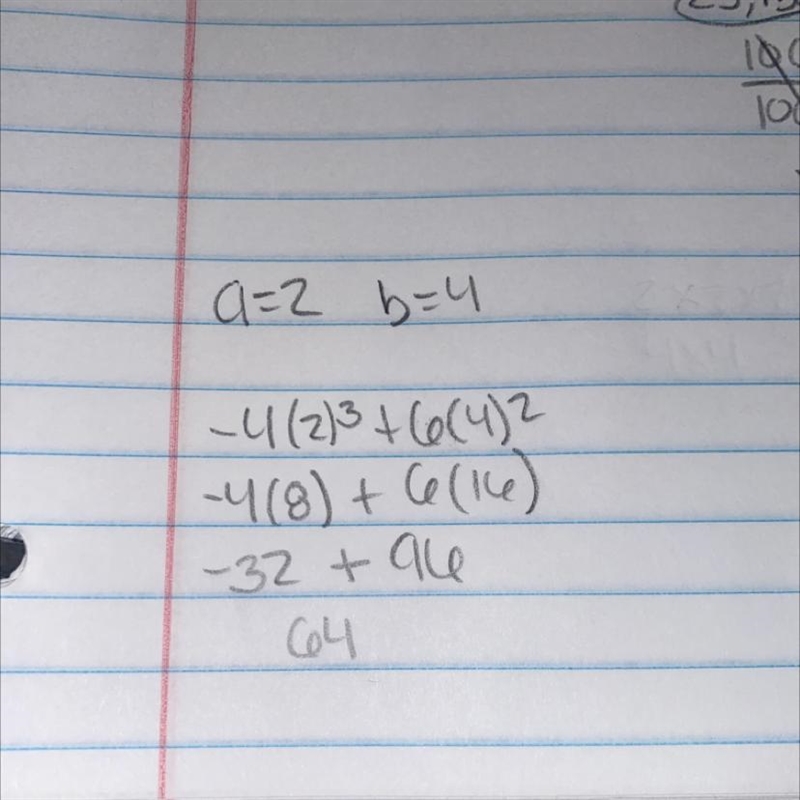 100
100
a=2 b=4
-4(2)³+6(4)²
-4(8) + 6(16)
-32 + 96
64